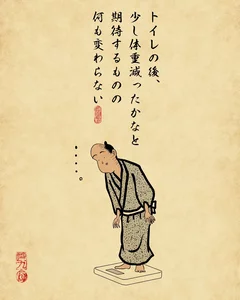 トイレの後、
少し体重減ったかなと
期待するものの
何も変わらない
・・・・。